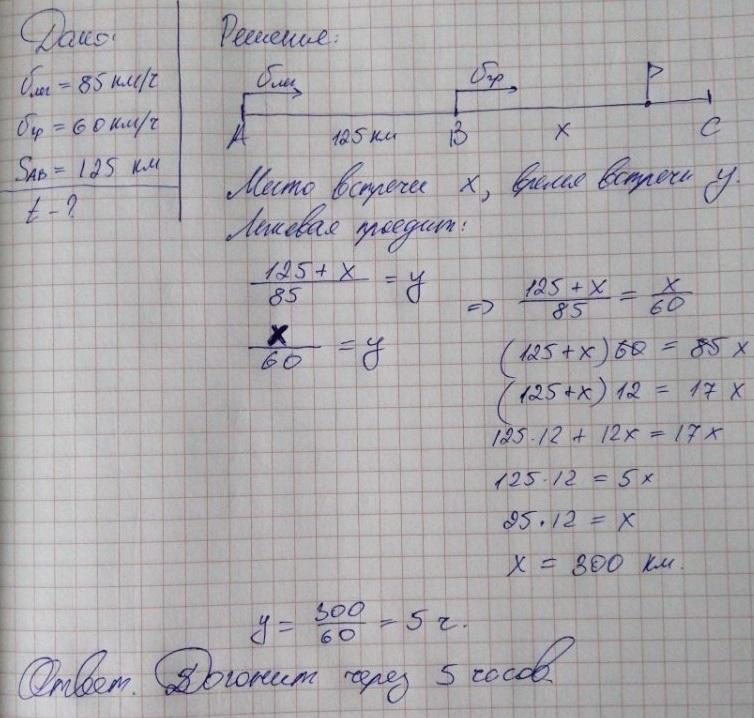 Дано:
Vлег = 85 км/ч
Vгр = 60 км/ч
SАВ = 125 км
t - ?
Решение:
Vлег Vгр
A 125 км B x C
Место встречи x, время встречи y.
Легковая проедит:
125 + x / 85 = y
x / 60 = y
=> 125 + x / 85 = x / 60
(125+x) 60 = 85 x
(125+x) 12 = 17 x
125·12 + 12x = 17x
125·12 = 5x
25·12 = x
x = 300 км.
y = 300 / 60 = 5 ч.
Ответ. Догонит через 5 часов